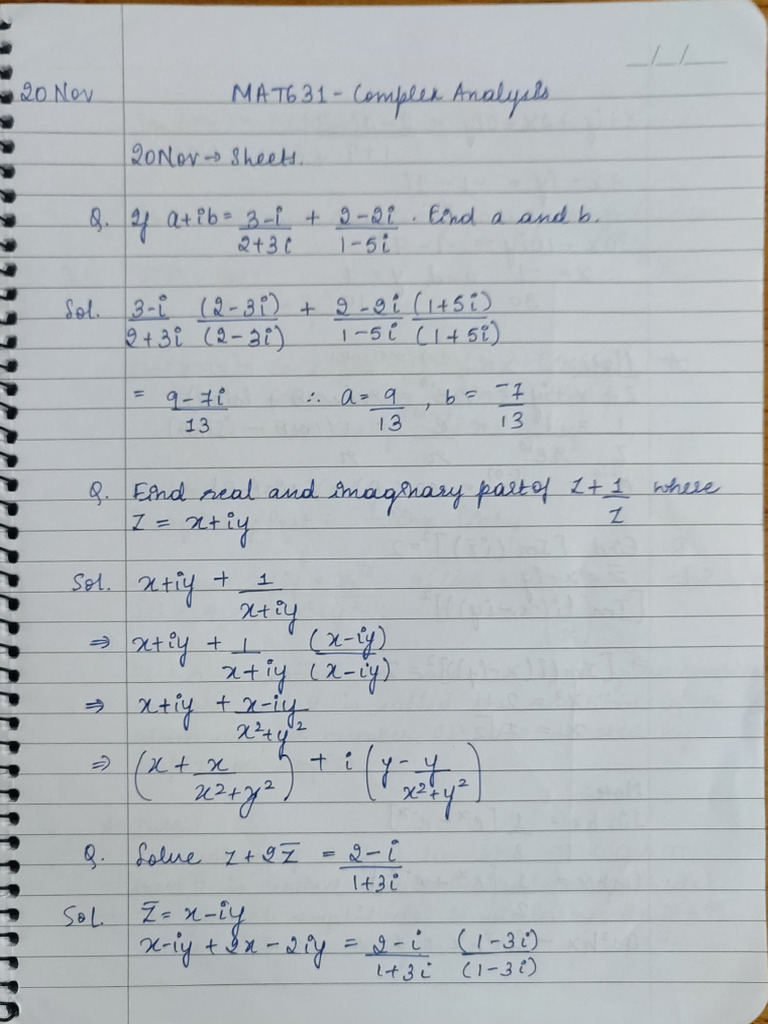 _/_/_
20 Nov MAT631 - Complex Analysis
20Nov → Sheets.
Q. If a+ib = (3-i)/(2+3i) + (2-2i)/(1-5i) . Find a and b.
Sol. (3-i)/(2+3i) (2-3i)/(2-3i) + (2-2i)/(1-5i) (1+5i)/(1+5i)
= (9-7i)/13 ∴ a = 9/13 , b = -7/13
Q. Find real and imaginary part of z + 1/z where
z = x+iy
Sol. x+iy + 1/(x+iy)
⇒ x+iy + 1/(x+iy) (x-iy)/(x-iy)
⇒ x+iy + (x-iy)/(x²+y²)
⇒ (x + x/(x²+y²)) + i (y - y/(x²+y²))
Q. Solve z + 2z̅ = (2-i)/(1+3i)
Sol. z̅ = x-iy
x-iy + 2x - 2iy = (2-i)/(1+3i) (1-3i)/(1-3i)